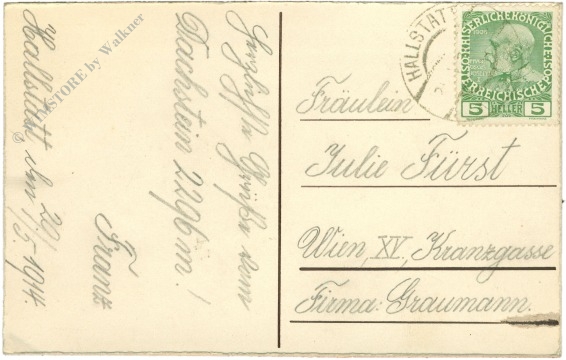 Herzlichste Grüße vom
Dachstein 2296m!
Franz
Hallstatt am 20/5. 1914.
HALLSTATT
KAISERLICHE KÖNIGLICHE
ÖSTERREICHISCHE
5 HELLER 5
Fräulein
Julie Fürst
Wien, XV, Kranzgasse
Firma: Graumann.
STORE by Walkner